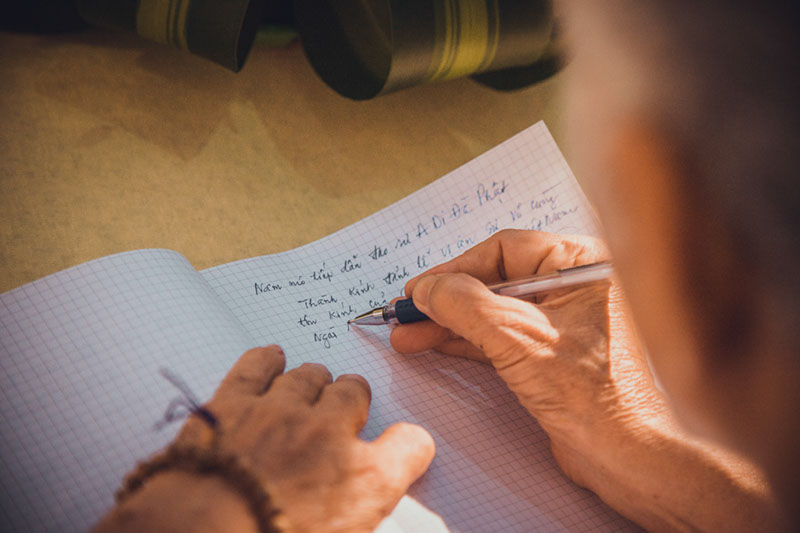 Nam mô tiếp dẫn đạo sư A Di Đà Phật
Thành kính đảnh lễ vị ân sư vô cùng
tôn kính, của
Ngài